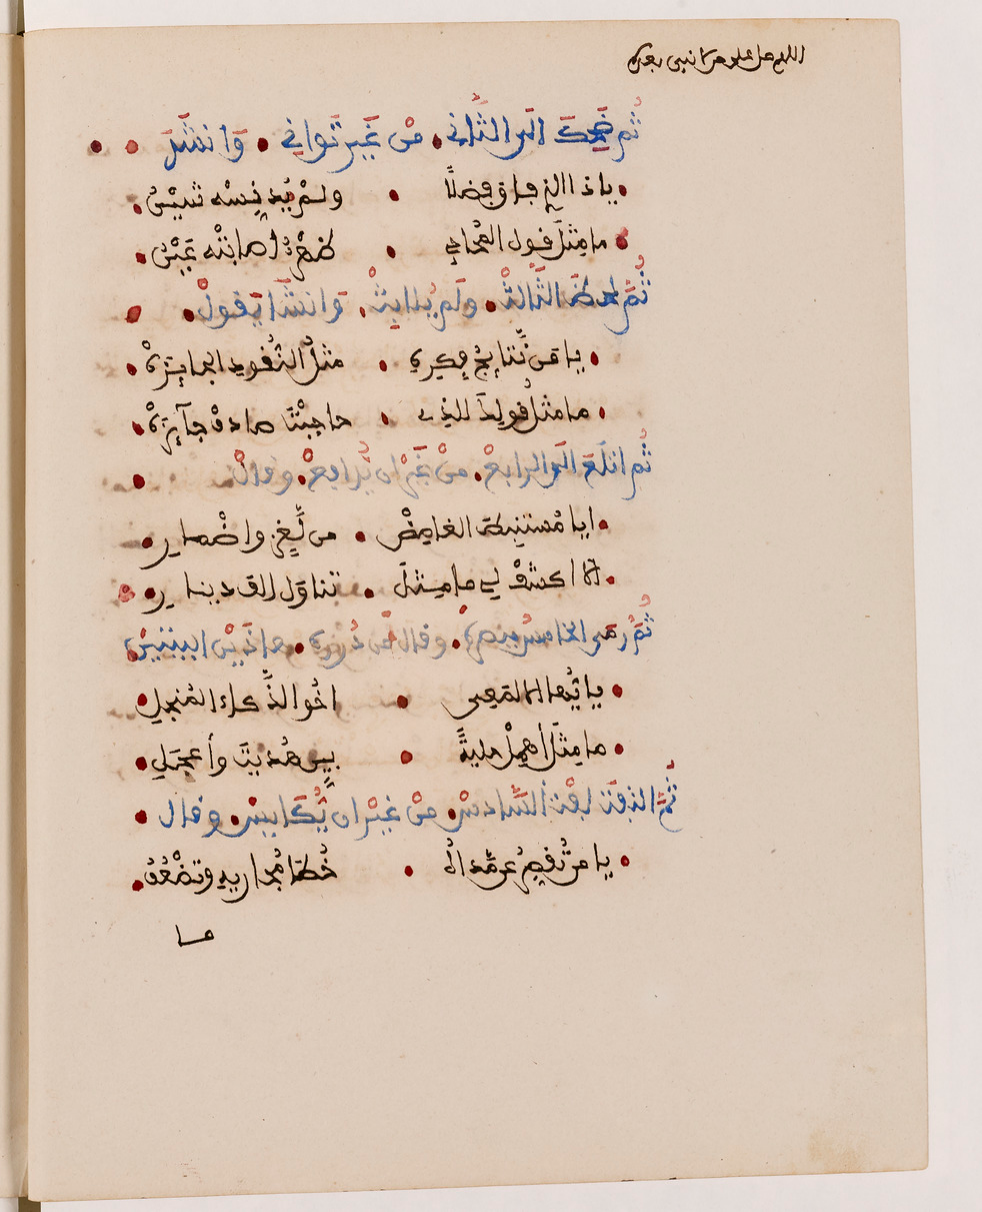 اللهم صل على من لا نبي بعده
ثُم ضَحِكَ الَى الثَّانِي. مِنْ غَيْرِ تَوَانِي. وَانشَدَ
يا ذا الذي فاق فضلًا ولمْ يُدنِّسْه شَيْنُ
ما مِثلُ قول المُحاجِي ظهْرٌ أصابتْه عَيْنُ
ثُمَّ لحظَ الثَّالثْ. ولَم يُلابِثْ. وَانشَا يَقولْ
يا من نَّتايجُ فِكرِه مثلُ النُّقودِ الجايِزهْ
ما مثلُ قولِكَ للذِي حاجيْتَ صادفْ جآيِزهْ
ثُم اتلَعَ الَى الرابعْ. مِنْ غَيْرِ ان يُّدافعْ. وقالْ
ايا مُستنبِطَ الغامِضْ مِن لُّغزٍ واضْمارِ
ألا اكشفْ لِي ما مِثلُ تناوَل ألف دينارِ
ثُمَّ رَمَى الخامسُ ببصرهْ. وقال من دُررِه. هاذَيْنِ البيتيْن
يا أيُّها الالمَعِى اخُو الذَّكاء المُنجلِ
ما مِثلُ أهمِلْ حليةً بيِّن هُديتَ وأعجَلِ
ثُمَّ التفتَ لفْتةَ السَّادسْ. مِنْ غيْرِ ان يُّكَايسْ. وقال
يا من تُقصِرُ عن مَّداهُ خُطا مُجاريهِ وتضْعُفُ
ما